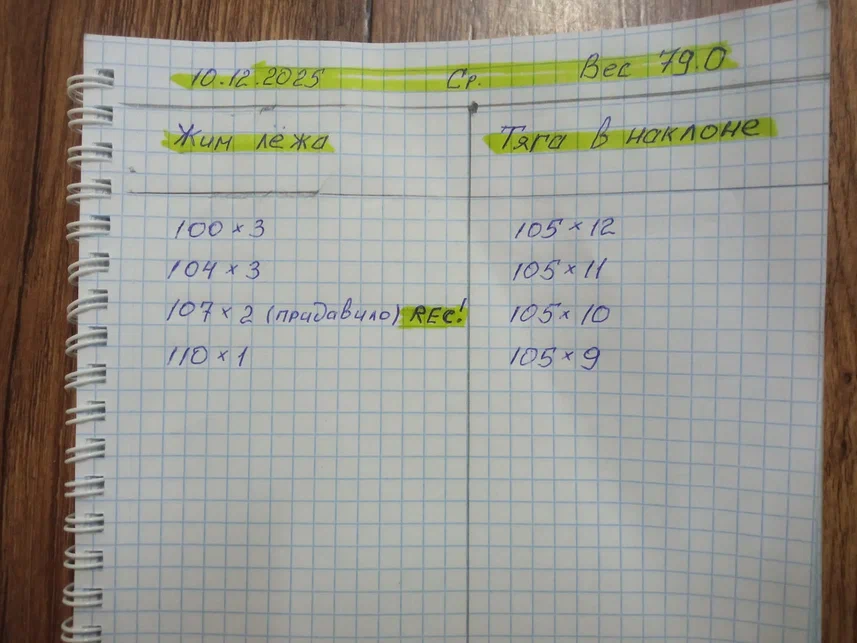 10.12.2025 Ср. Вес 79.0
Жим лёжа
100 × 3
104 × 3
107 × 2 (придавило) REC!
110 × 1
Тяга в наклоне
105 × 12
105 × 11
105 × 10
105 × 9